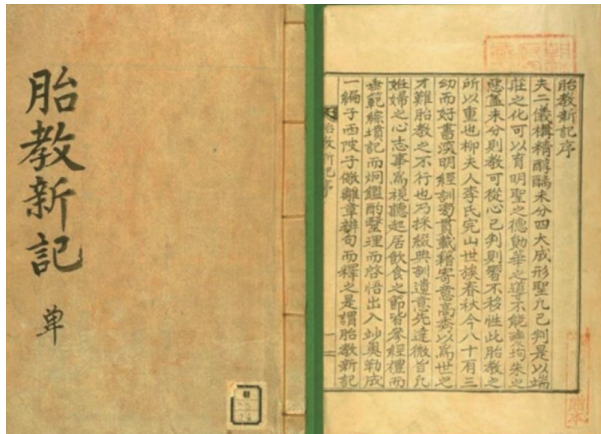 胎教新記
單
胎教新記序
夫二儀構精醇醨未分四大成形聖凡已判是以端
莊之化可以育明聖之德勛華之導不能讓均朱之
惡蓋未分則教可從心已判則習不移性此胎教之
所以重也柳夫人李氏完山世族春秋今八十有三
幼而好書深明經訓蜀貫載籍寄意高素以爲世之
才難胎教之不行也乃採綴典訓遺意先達微旨凡
姙婦之心志事爲視聽起居飮食之節皆參經禮而
垂範綜墳記而炯鑑酌毉理而啓悟出入妙奥勒成
一編子西陂子儆離章辨句而釋之是謂胎教新記
胎教新記序
一